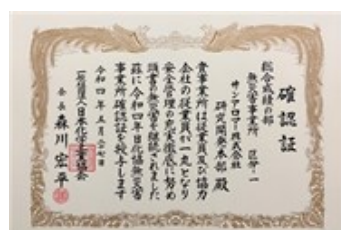 確認証
総合成績の部
無災害事業所 区分-一
サンアロマー株式会社
研究開発本部 殿
貴事業所は従業員及び協力
会社の従業員が一丸となり
安全管理の充実徹底に努め
頭書の無災害を継続されました
茲に令和四年日化協無災害
事業所確認証を授与します
令和四年五月二十七日
一般社団法人日本化学工業協会
会長 森川宏平